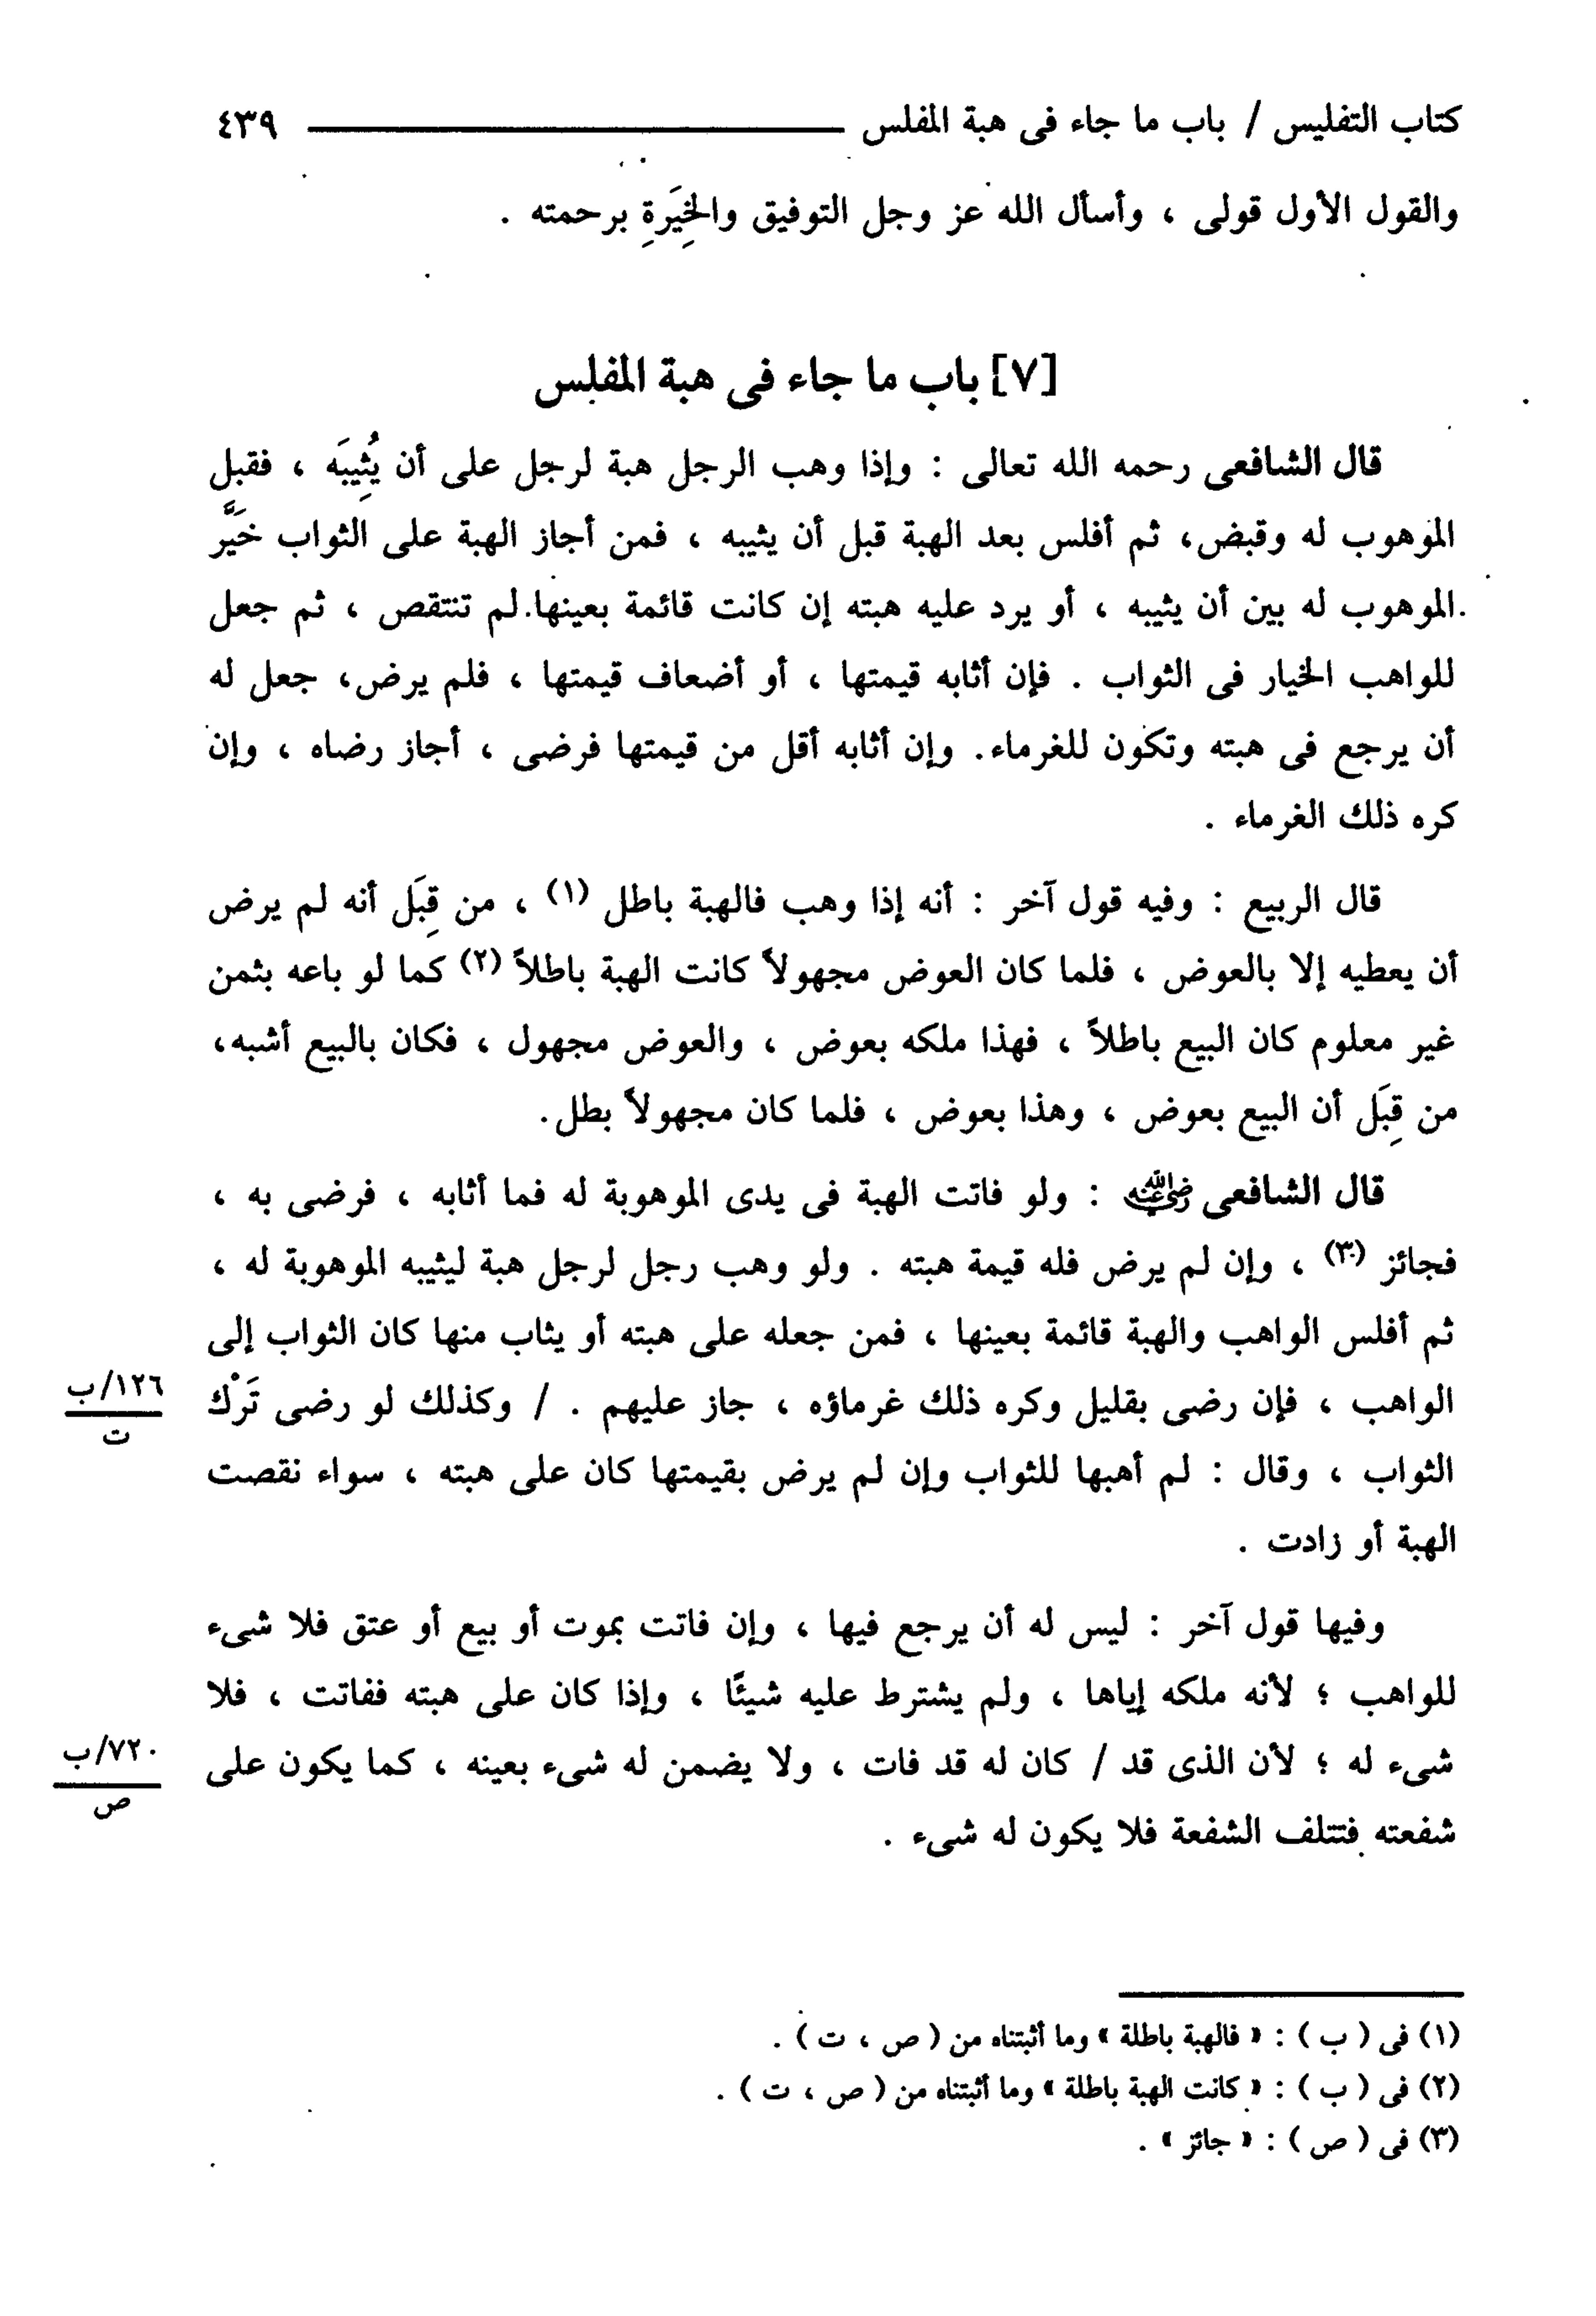 كتاب التفليس / باب ما جاء فى هبة المفلس ــــــــــــــــــ ٤٣٩
والقول الأول قولى ، وأسأل الله عز وجل التوفيق والخِيَرةِ برحمته .
[٧] باب ما جاء فى هبة المفلس
قال الشافعى رحمه الله تعالى : وإذا وهب الرجل هبة لرجل على أن يُثِيبَه ، فقبل
الموهوب له وقبض، ثم أفلس بعد الهبة قبل أن يثيبه ، فمن أجاز الهبة على الثواب خَيَّر
الموهوب له بين أن يثيبه ، أو يرد عليه هبته إن كانت قائمة بعينها.لم تنتقص ، ثم جعل
للواهب الخيار فى الثواب . فإن أثابه قيمتها ، أو أضعاف قيمتها ، فلم يرض، جعل له
أن يرجع فى هبته وتكون للغرماء. وإن أثابه أقل من قيمتها فرضى ، أجاز رضاه ، وإن
كره ذلك الغرماء .
قال الربيع : وفيه قول آخر : أنه إذا وهب فالهبة باطل (١) ، من قِبَل أنه لم يرض
أن يعطيه إلا بالعوض ، فلما كان العوض مجهولاً كانت الهبة باطلاً (٢) كما لو باعه بثمن
غير معلوم كان البيع باطلاً ، فهذا ملكه بعوض ، والعوض مجهول ، فكان بالبيع أشبه،
من قِبَل أن البيع بعوض ، وهذا بعوض ، فلما كان مجهولاً بطل.
قال الشافعى رضي الله عنه : ولو فاتت الهبة فى يدى الموهوبة له فما أثابه ، فرضى به ،
فجائز (٣) ، وإن لم يرض فله قيمة هبته . ولو وهب رجل لرجل هبة ليثيبه الموهوبة له ،
ثم أفلس الواهب والهبة قائمة بعينها ، فمن جعله على هبته أو يثاب منها كان الثواب إلى
الواهب ، فإن رضى بقليل وكره ذلك غرماؤه ، جاز عليهم . / وكذلك لو رضى تَرْك
١٢٦/ب
ت
الثواب ، وقال : لم أهبها للثواب وإن لم يرض بقيمتها كان على هبته ، سواء نقصت
الهبة أو زادت .
وفيها قول آخر : ليس له أن يرجع فيها ، وإن فاتت بموت أو بيع أو عتق فلا شىء
للواهب ؛ لأنه ملكه إياها ، ولم يشترط عليه شيئًا ، وإذا كان على هبته ففاتت ، فلا
شىء له ؛ لأن الذى قد / كان له قد فات ، ولا يضمن له شىء بعينه ، كما يكون على
٧٢٠/ب
ص
شفعته فتتلف الشفعة فلا يكون له شىء .
(١) فى ( ب ) : « فالهبة باطلة » وما أثبتناه من ( ص ، ت ) .
(٢) فى ( ب ) : « كانت الهبة باطلة » وما أثبتناه من ( ص ، ت ) .
(٣) فى ( ص ) : « جائز » .